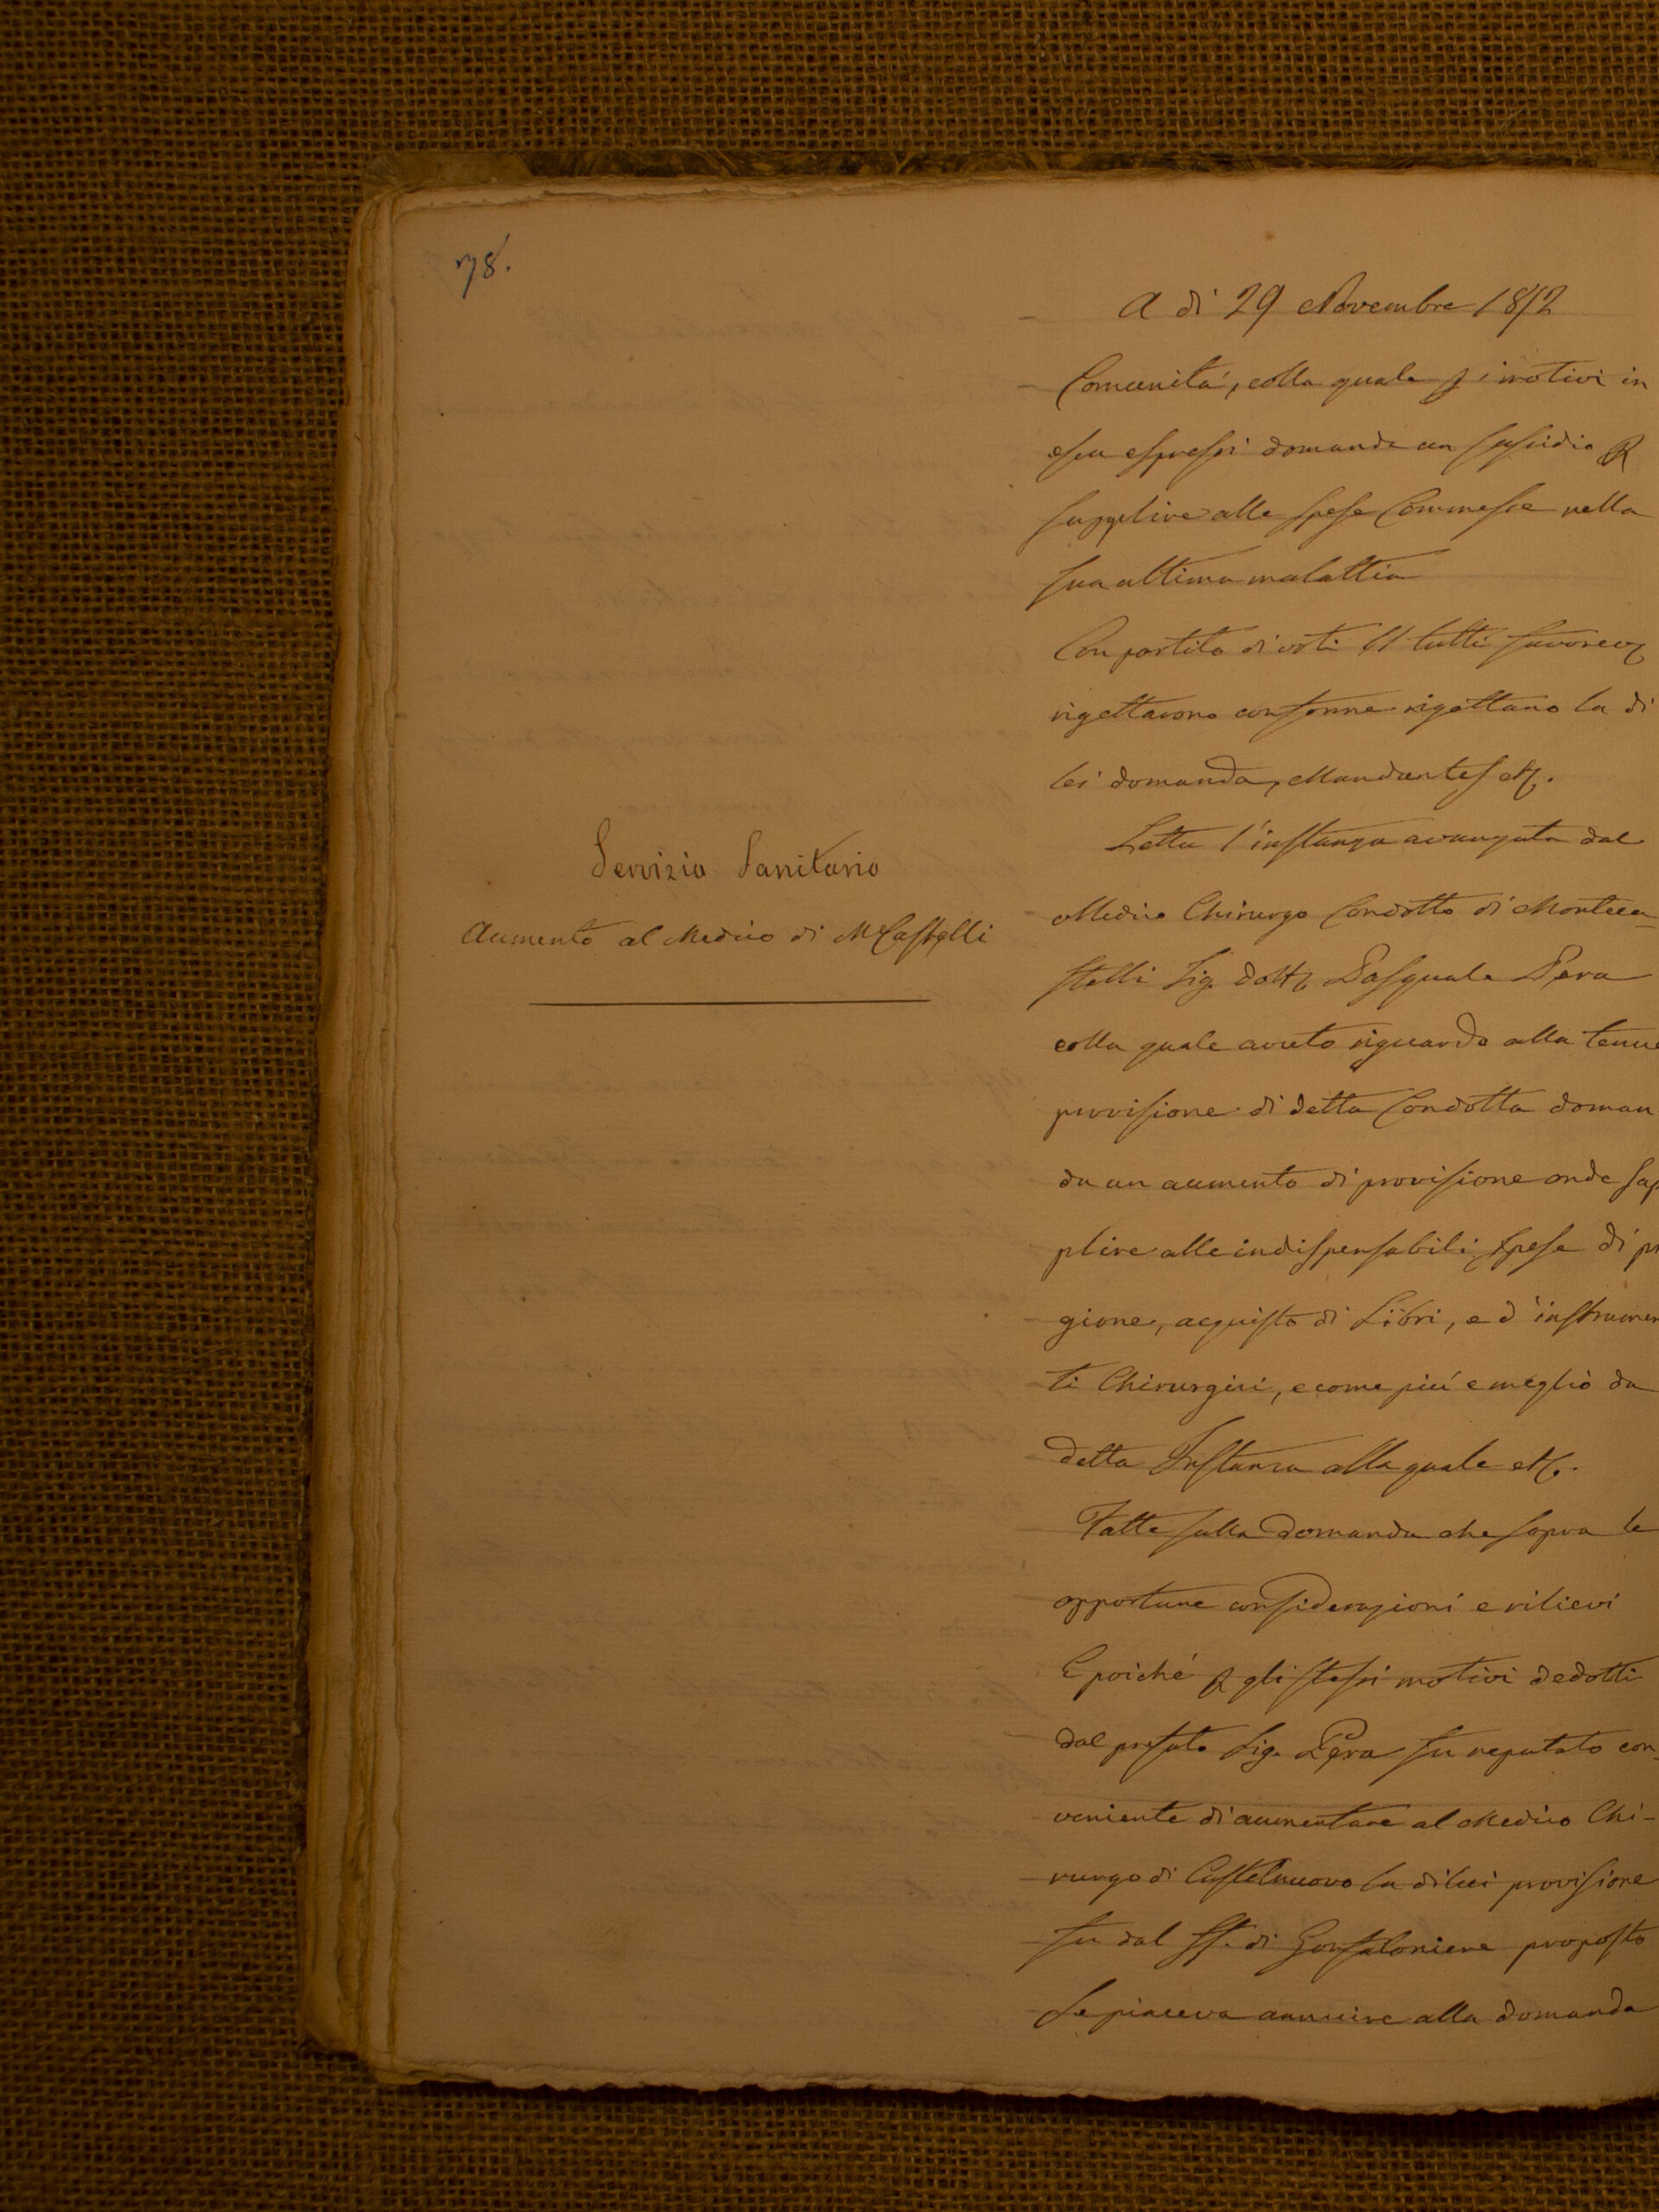 78.
A di 29 Novembre 1852
Comunitá, colla quale p i motivi in
essa espressi domanda un sussidio p
supplire alle spese Commesse nella
sua ultima malattia
Con partito di voti 11 tutti favorev
rigettarono conforme rigettano la di
lei domanda, Mandantes etc.
Servizio Sanitario
Aumento al Medico di MCastelli
Letta l'instanza avanzata dal
Medico Chirurgo Condotto di Monteca-
stelli Sig. Dott Pasquale Pera
colla quale avuto riguardo alla tenue
provisione di detta Condotta doman
da un aumento di provisione onde sup
plire alle indispensabili spese di pi
gione, acquisto di Libri, e d'instrumen
ti Chirurgici, e come piú e meglio da
detta Instanza alla quale etc.
Fatte sulla domanda che sopra le
opportune considerazioni e rilievi
E poiché p gli stessi motivi dedotti
dal prefato Sig. Pera fu reputato con-
veniente di aumentare al Medico Chi-
rurgo di Castelnuovo la di lui provisione
fu dal ff. di Gonfaloniere proposto
se piaceva annuire alla domanda